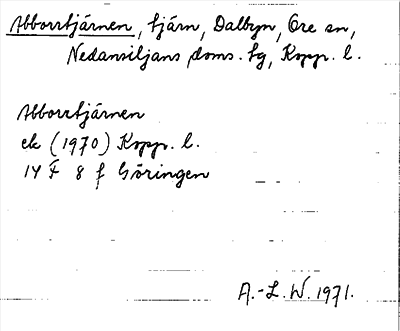 Abborrtjärnen, tjärn, Dalbyn, Ore sn,
Nedansiljans doms. tg, Kopp. l.
Abborrtjärnen
ek (1970) Kopp. l.
14 F 8 f Göringen
A.-L. W. 1971.